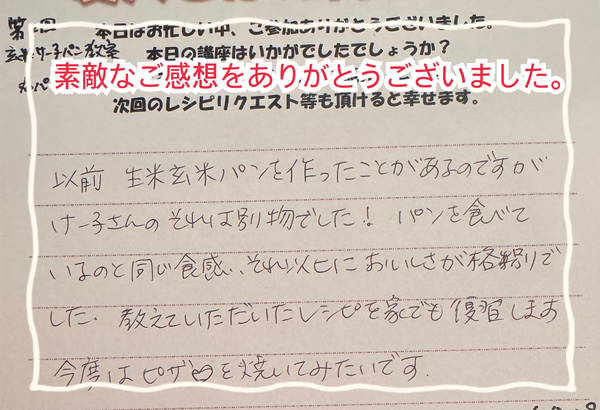 本日はお忙しい中、ご参加ありがとうございました。
玄米けー子パン教室 本日の講座はいかがでしたでしょうか？
素敵なご感想をありがとうございました。
次回のレシピリクエスト等も頂けると幸せます。
以前 生米玄米パンを作ったことがあるのですが
けー子さんのそれは別物でした! パンを食べて
いるのと同じ食感、、それ以上においしさが格別で
した. 教えていただいたレシピを家でも復習します
今度はピザ♡を焼いてみたいです.